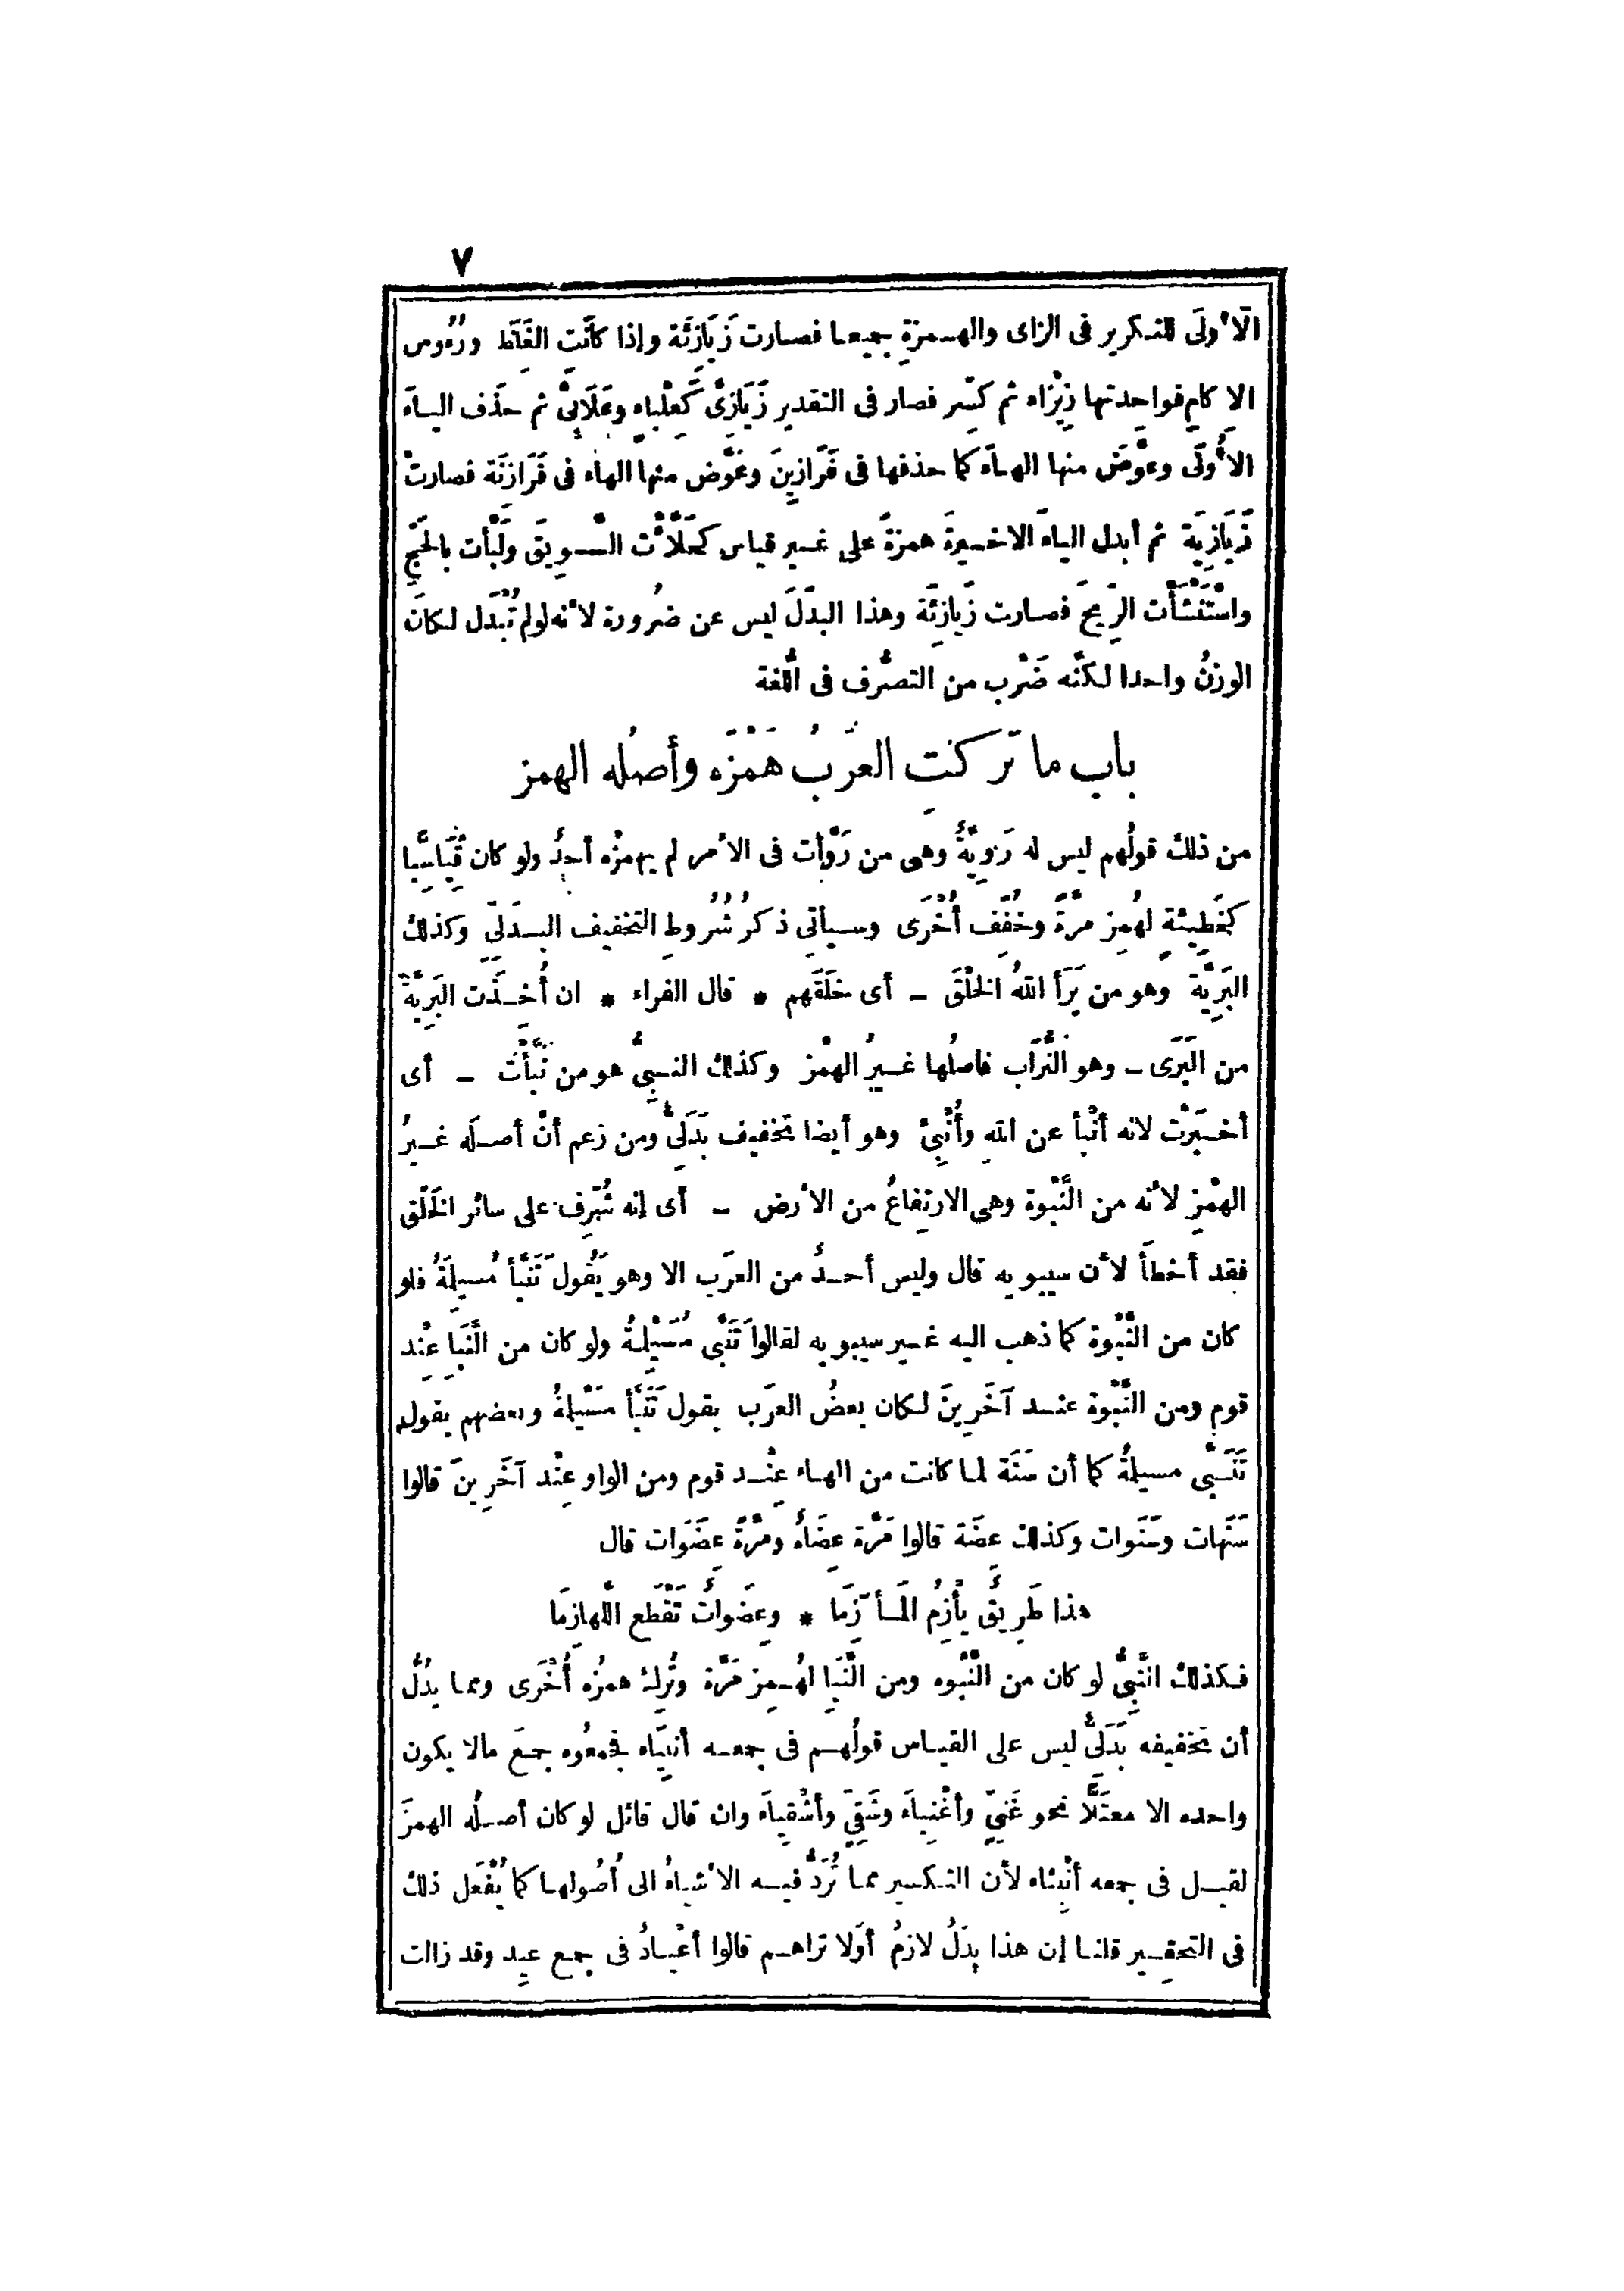 ٧
الأُولَى للتكرير فى الزاى والهمزةِ جميعا فصارت زَيَازِئَة وإذا كانَتِ الغَلَظ ورُءُوس
الا كامِ فواحِدتها زِيْزاء ثم كُسِّر فصار فى التقدير زَيَازِىّ كَعِلْباءٍ وعَلَابِىّ ثم حذَف الياءَ
الأُولَى وعوَّض منها الهاءَ كما حذفها فى فَرَازِينَ وعوَّض منها الهاء فى فَرَازِنَة فصارتْ
زَيَازِيَة ثم أبدل الياءَ الاخيرةَ همزةً على غير قياس كَحَلَّأْت السَّوِيقَ ولَبَّأت بالحَجِّ
واسْتَنْشَأْت الرِّيحَ فصارت زَيازِئَة وهذا البدَلَ ليس عن ضرُورة لأنه لو لم تُبْدَل لكانَ
الوزنُ واحدا لكنَّه ضَرْب من التصرُّف فى اللُّغة
باب ما تَركتِ العَرَبُ هَمْزَه وأصلُه الهمز
من ذلك قولُهم ليس له رَوِيَّةٌ وهى من رَوَّأت فى الأمر لم يهمزْه أحدٌ ولو كان قِيَاسِيًّا
كخَطِيئةٍ لهُمِز مرَّةً وخُفِّف أُخْرَى وسيأتى ذكرُ شُرُوطِ التخفيف البدَلِىِّ وكذلك
البَرِيَّة وهو من بَرَأَ اللهُ الخلْقَ - أى خلَقَهم * قال الفراء * ان أُخِذَت البَرِيَّةُ
من البَرَى - وهو التُّرَاب فاصلُها غيرُ الهمْز وكذلك النبِىُّ هو من نَبَّأْت - أى
أخبَرْت لانه أنْبأ عن اللهِ وأُنْبِئَ وهو أيضا تخفيف بَدَلىٌّ ومن زعم أنْ أصلَه غيرُ
الهمْزِ لأنه من النَّبْوة وهى الارتِفاعُ من الأرض - أى إنه شُرِّف على سائر الخَلْق
فقد أخطأَ لأن سيبويه قال وليس أحدٌ من العرَب الا وهو يَقُول تَنَبَّأَ مُسيلِمَةُ فلو
كان من النَّبْوة كما ذهب اليه غير سيبويه لقالوا تَنَبَّى مُسَيْلِمةُ ولو كان من النَّبَإِ عِنْد
قوم ومن النَّبْوة عند آخَرِينَ لكان بعضُ العرَب يقول تَنَبَّأَ مسَيْلِمةُ وبعضهم يقول
تَنَبَّى مسيلمةُ كما أن سَنَة لما كانت من الهاء عِنْد قوم ومن الواو عِنْد آخَرِينَ قالوا
سَنَهات وسَنَوات وكذلك عضَة قالوا مَرَّة عِضَاهٌ ومَرَّةً عِضَوَات قال
هذا طَرِيقٌ يأْزِمُ المَآزِمَا * وعِضَواتٌ تَقْطَع اللَّهازِمَا
فكذلك النَّبِىُّ لو كان من النَّبْوه ومن النَّبَإِ لهُمِز مَرَّة وتُرِك همزُه أُخْرَى ومما يدُلُّ
أن تخفيفه بَدَلىٌّ ليس على القياس قولُهم فى جمعه أنبِيَاء فجمعُوه جمعَ مالا يكون
واحده الا معتَلًّا نحو غَنِىٍّ وأغْنِياءَ وشَقِىٍّ وأشْقِياءَ وان قال قائل لو كان أصلُه الهمزَ
لقيل فى جمعه أنْبِئاء لأن التكسير مما تُرَدُّ فيه الأشياءُ الى أُصُولها كما يُفْعَل ذلك
فى التحقِير قلنا إن هذا بدَلٌ لازمٌ أوَلا تراهم قالوا أعْيادٌ فى جمع عِيد وقد زالت